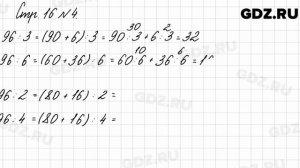 GDZ.RU
Стр. 16 № 4
96 : 3 = (90 + 6) : 3 = 90 : 3 + 6 : 3 = 32
30 2
96 : 6 = (60 + 36) : 6 = 60 : 6 + 36 : 6 = 1
10 6
96 : 2 = (80 + 16) : 2 =
96 : 4 = (80 + 16) : 4 =
GDZ.RU